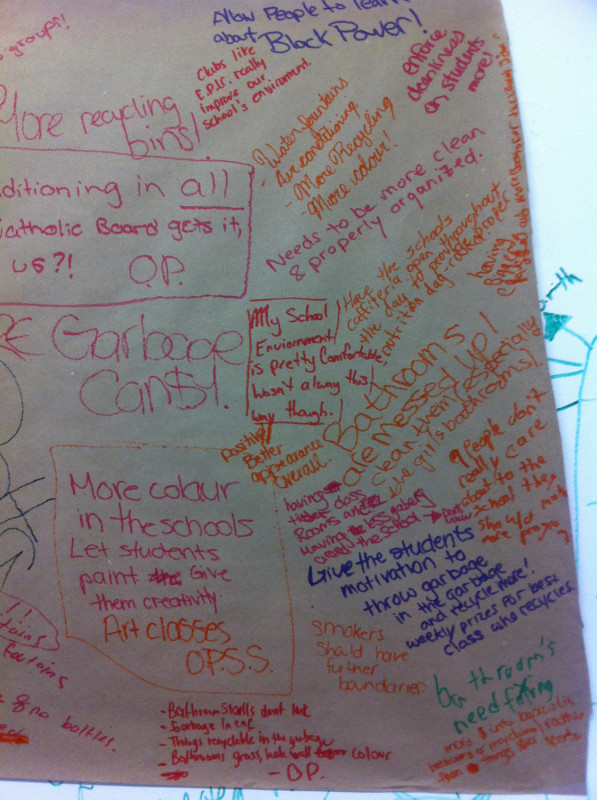 groups!
Allow People to learn
about Black Power!
Clubs like
E.P.I.C. really
improve our
school's environment.
enforce
cleanliness
on students
more!
More recycling
bins!
- Water fountains
- Air conditioning
- More Recycling
- More colour!
Needs to be more clean
& properly organized.
ditioning in all
catholic Board gets it,
us?!
O.P.
Have the schools
caffiteria open throughout
the day to provide proper
nutrition day
having
Garbage
CAN$!
My School
Enviornment
is pretty comfortable
wasn't alway this
way though.
Bathrooms
are messed up!
clean them (especially
the girl's bathrooms)
positive
Better
appearance
Overall.
People don't
really care
about to the
school they
should
more
More colour
in the schools
Let students
paint Give
them creativity
Art classes
O.P.S.S.
having
class
Rooms
Having less garbage
around the school
Give the students
motivation to
throw garbage
in the garbage
and recycle more!
weekly prizes for best
class who recycles.
smokers
should have
further
boundaries
bathroom's
need fixing
more $ into
bathrooms or recycling rather
than things like sports.
fountains
no bottles.
- Bathroom stalls dont lock
- Garbage in caf
- Things recyclable in the garbage
- Bathrooms gross, hate wall colour
- O.P.